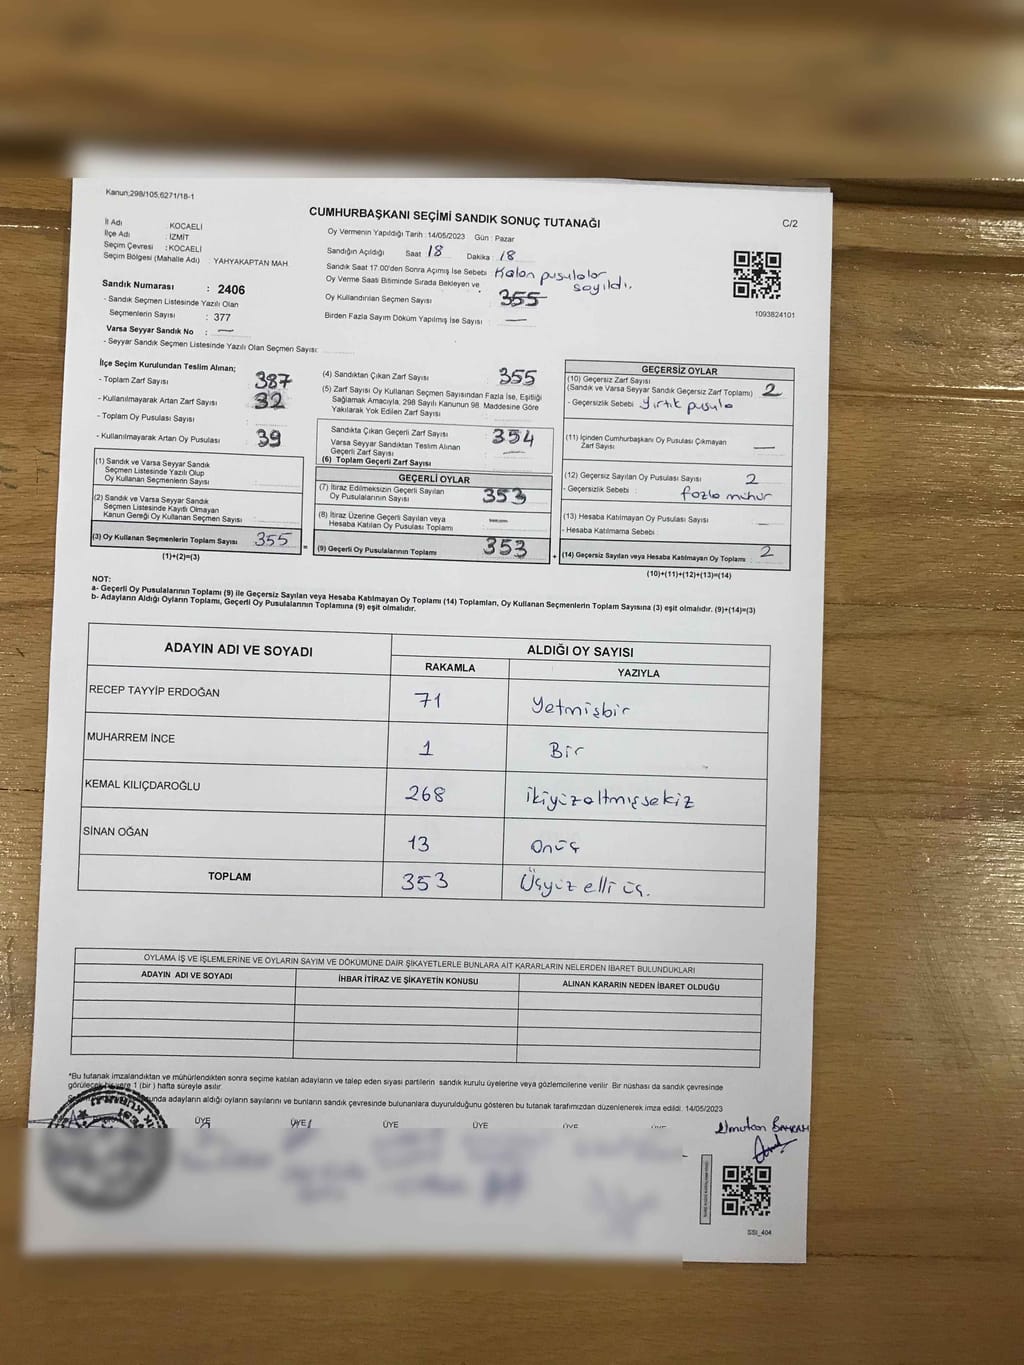 Kanun;298/105;6271/18-1
CUMHURBAŞKANI SEÇİMİ SANDIK SONUÇ TUTANAĞI
C/2
İl Adı : KOCAELİ
İlçe Adı : İZMİT
Seçim Çevresi : KOCAELİ
Seçim Bölgesi (Mahalle Adı) : YAHYAKAPTAN MAH.
Sandık Numarası : 2406
- Sandık Seçmen Listesinde Yazılı Olan
Seçmenlerin Sayısı : 377
Varsa Seyyar Sandık No : —
- Seyyar Sandık Seçmen Listesinde Yazılı Olan Seçmen Sayısı:
Oy Vermenin Yapıldığı Tarih : 14/05/2023 Gün : Pazar
Sandığın Açıldığı Saat 18 Dakika : 18
Sandık Saat 17:00'den Sonra Açımış İse Sebebi Kalan pusulalar
sayıldı.
Oy Verme Saati Bitiminde Sırada Bekleyen ve
Oy Kullandırılan Seçmen Sayısı : 355
Birden Fazla Sayım Döküm Yapılmış İse Sayısı : —
1093824101
İlçe Seçim Kurulundan Teslim Alınan;
- Toplam Zarf Sayısı 387
- Kullanılmayarak Artan Zarf Sayısı 32
- Toplam Oy Pusulası Sayısı
- Kullanılmayarak Artan Oy Pusulası 39
(1) Sandık ve Varsa Seyyar Sandık
Seçmen Listesinde Yazılı Olup
Oy Kullanan Seçmenlerin Sayısı :
(2) Sandık ve Varsa Seyyar Sandık
Seçmen Listesinde Kayıtlı Olmayan
Kanun Gereği Oy Kullanan Seçmen Sayısı :
(3) Oy Kullanan Seçmenlerin Toplam Sayısı : 355
(1)+(2)=(3)
(4) Sandıktan Çıkan Zarf Sayısı : 355
(5) Zarf Sayısı Oy Kullanan Seçmen Sayısından Fazla İse, Eşitliği
Sağlamak Amacıyla, 298 Sayılı Kanunun 98. Maddesine Göre
Yakılarak Yok Edilen Zarf Sayısı :
Sandıkta Çıkan Geçerli Zarf Sayısı : 354
Varsa Seyyar Sandıktan Teslim Alınan
Geçerli Zarf Sayısı : —
(6) Toplam Geçerli Zarf Sayısı
GEÇERLİ OYLAR
(7) İtiraz Edilmeksizin Geçerli Sayılan
Oy Pusulalarının Sayısı : 353
(8) İtiraz Üzerine Geçerli Sayılan veya
Hesaba Katılan Oy Pusulası Toplamı : —
(9) Geçerli Oy Pusulalarının Toplamı : 353
GEÇERSİZ OYLAR
(10) Geçersiz Zarf Sayısı
(Sandık ve Varsa Seyyar Sandık Geçersiz Zarf Toplamı) : 2
- Geçersizlik Sebebi : Yırtık pusula
(11) İçinden Cumhurbaşkanı Oy Pusulası Çıkmayan
Zarf Sayısı : —
(12) Geçersiz Sayılan Oy Pusulası Sayısı : 2
- Geçersizlik Sebebi : fazla mühür
(13) Hesaba Katılmayan Oy Pusulası Sayısı : —
- Hesaba Katılmama Sebebi :
(14) Geçersiz Sayılan veya Hesaba Katılmayan Oy Toplamı : 2
(10)+(11)+(12)+(13)=(14)
NOT:
a- Geçerli Oy Pusulalarının Toplamı (9) ile Geçersiz Sayılan veya Hesaba Katılmayan Oy Toplamı (14) Toplamları, Oy Kullanan Seçmenlerin Toplam Sayısına (3) eşit olmalıdır. (9)+(14)=(3)
b- Adayların Aldığı Oyların Toplamı, Geçerli Oy Pusulalarının Toplamına (9) eşit olmalıdır.
ADAYIN ADI VE SOYADI
ALDIĞI OY SAYISI
RAKAMLA YAZIYLA
RECEP TAYYİP ERDOĞAN 71 Yetmişbir
MUHARREM İNCE 1 Bir
KEMAL KILIÇDAROĞLU 268 İkiyüzaltmışsekiz
SİNAN OĞAN 13 Onüç
TOPLAM 353 Üçyüz elli üç.
OYLAMA İŞ VE İŞLEMLERİNE VE OYLARIN SAYIM VE DÖKÜMÜNE DAİR ŞİKAYETLERLE BUNLARA AİT KARARLARIN NELERDEN İBARET BULUNDUKLARI
ADAYIN ADI VE SOYADI İHBAR İTİRAZ VE ŞİKAYETİN KONUSU ALINAN KARARIN NEDEN İBARET OLDUĞU
*Bu tutanak imzalandıktan ve mühürlendikten sonra seçime katılan adayların ve talep eden siyasi partilerin sandık kurulu üyelerine veya gözlemcilerine verilir. Bir nüshası da sandık çevresinde
görülecek bir yere 1 (bir) hafta süreyle asılır.
adayların aldığı oyların sayılarını ve bunların sandık çevresinde bulunanlara duyurulduğunu gösteren bu tutanak tarafımızdan düzenlenerek imza edildi. 14/05/2023
ÜYE ÜYE ÜYE ÜYE ÜYE
SSI_404